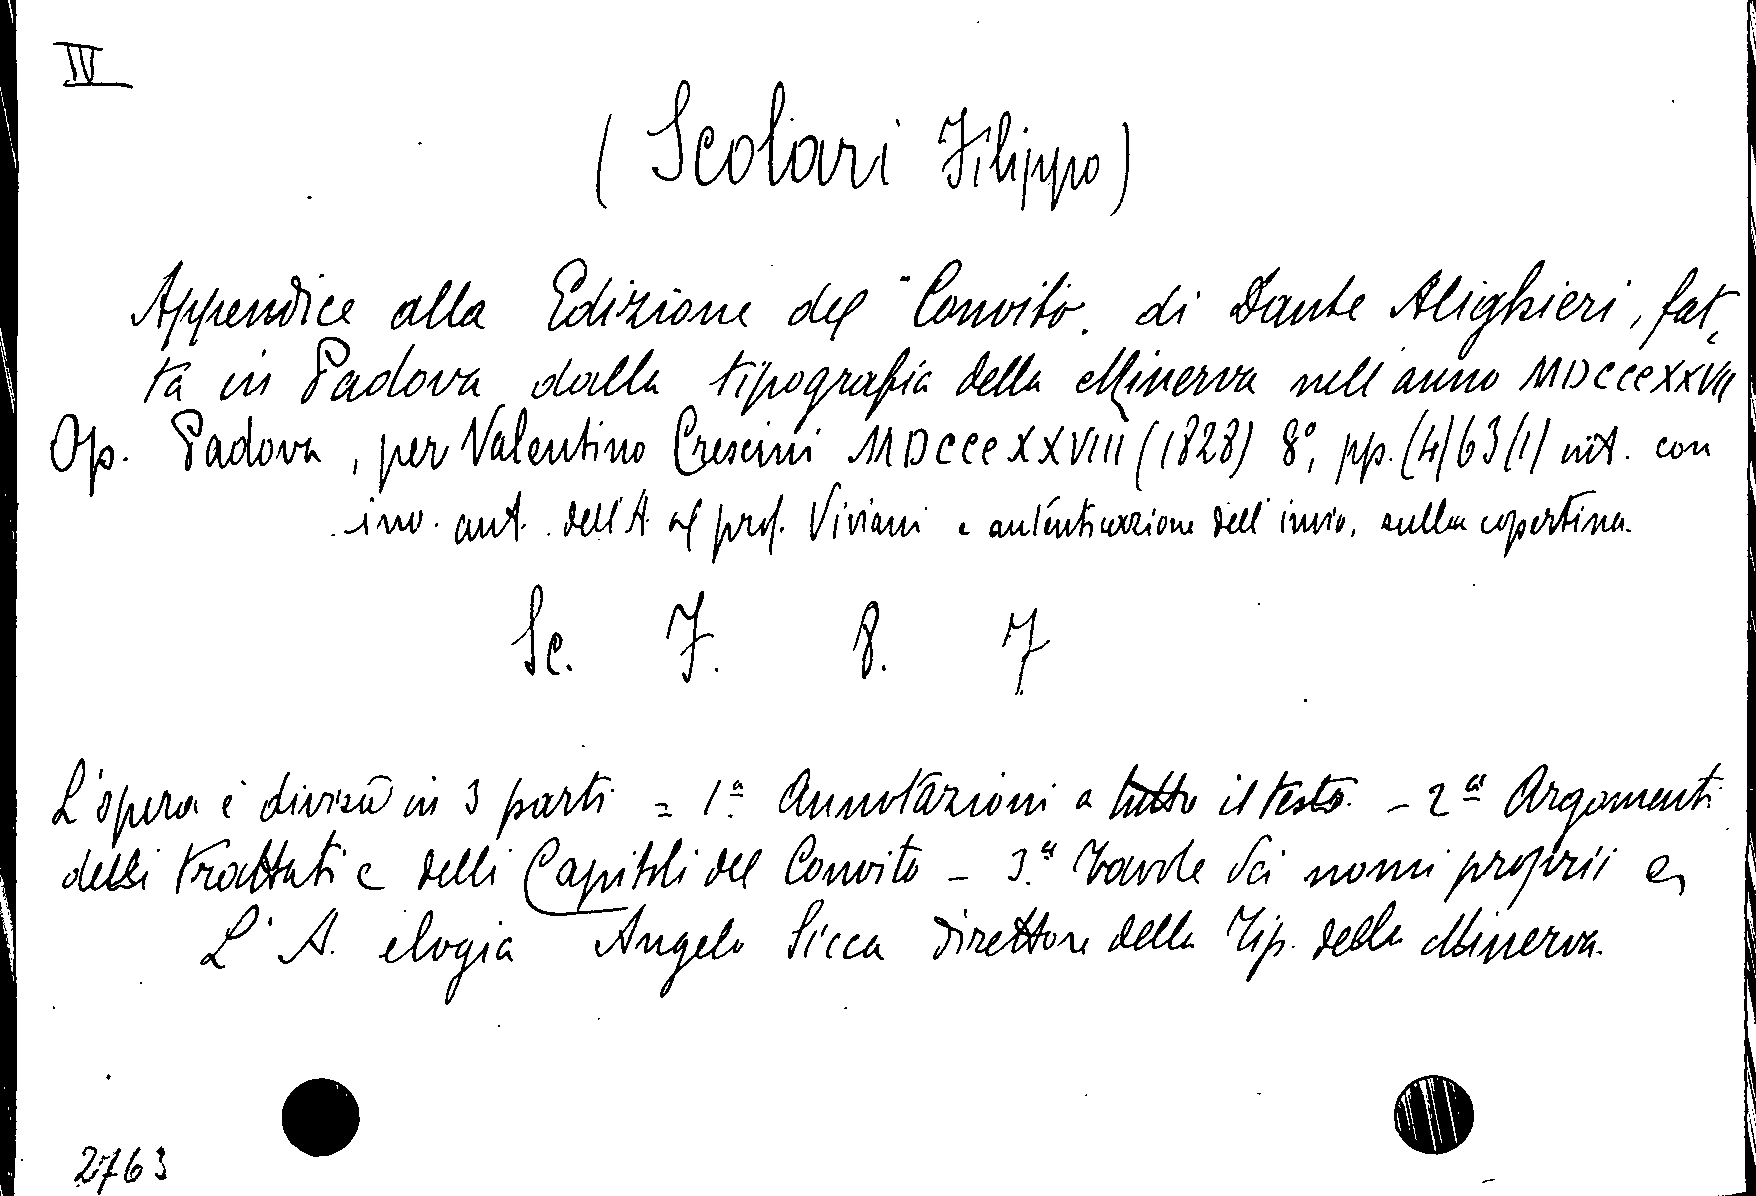 IV
(Scolari Filippo)
Appendice alla Edizione del "Convito" di Dante Alighieri, fat-
ta in Padova dalla tipografia della Minerva nell'anno MDCCCXXVII
Op. Padova, per Valentino Crescini MDCCCXXVIII (1828) 8°, pp. (4) 63 (1) int. con
inv. aut. dell'A. al prof. Viviani e autenticazione dell'invio, sulla copertina.
Sc. F. 8. 7
L'opera è divisa in 3 parti = 1ª Annotazioni a tutto il testo. - 2ª Argomenti
delli trattati e delli Capitoli del Convito - 3ª Tavole dei nomi proprii
L'A. elogia Angelo Sicca direttore della Tip. della Minerva.
2763